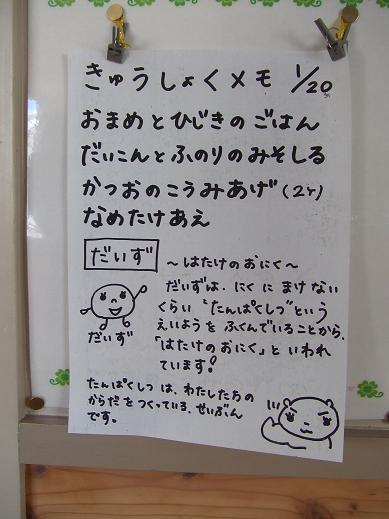 きゅうしょくメモ 1/20
おまめとひじきのごはん
だいこんとふのりのみそしる
かつおのこうみあげ(2ヶ)
なめたけあえ
だいず
～はたけのおにく～
だいずは、にくにまけない
くらい“たんぱくしつ”という
えいようをふくんでいることから、
「はたけのおにく」といわれ
ています!
だいず
たんぱくしつは、わたしたちの
からだをつくっている、せいぶん
です。